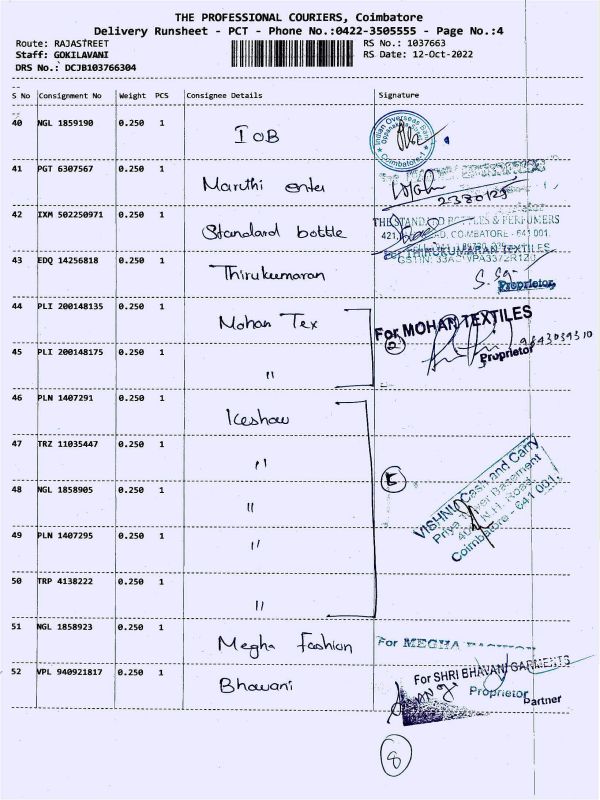 THE PROFESSIONAL COURIERS, Coimbatore
Delivery Runsheet - PCT - Phone No.:0422-3505555 - Page No.:4
Route: RAJASTREET RS No.: 1037663
Staff: GOKILAVANI RS Date: 12-Oct-2022
DRS No.: DCJB103766304
S No Consignment No Weight PCS Consignee Details Signature
40 NGL 1859190 0.250 1 IOB
Indian Overseas Bank
Coimbatore-1
41 PGT 6307567 0.250 1 Maruthi enter
2380129
42 IXM 502250971 0.250 1 Standard bottle
THE STANDARD BOTTLES & PERFUMERS
COIMBATORE - 641 001.
43 EDQ 14256818 0.250 1 Thirukumaran
THIRUKUMARAN TEXTILES
Proprietor
44 PLI 200148135 0.250 1 Mohan Tex
For MOHAN TEXTILES
Proprietor
45 PLI 200148175 0.250 1 "
46 PLN 1407291 0.250 1 Keshav
47 TRZ 11035447 0.250 1 "
48 NGL 1858905 0.250 1 "
5
VISHNU Cash and Carry
Basement
N.H. Road,
Coimbatore - 641 001.
49 PLN 1407295 0.250 1 "
50 TRP 4138222 0.250 1 "
51 NGL 1858923 0.250 1 Megha Fashion
For MEGHA FASHION
52 VPL 940921817 0.250 1 Bhavani
For SHRI BHAVANI GARMENTS
Proprietor
Partner
8